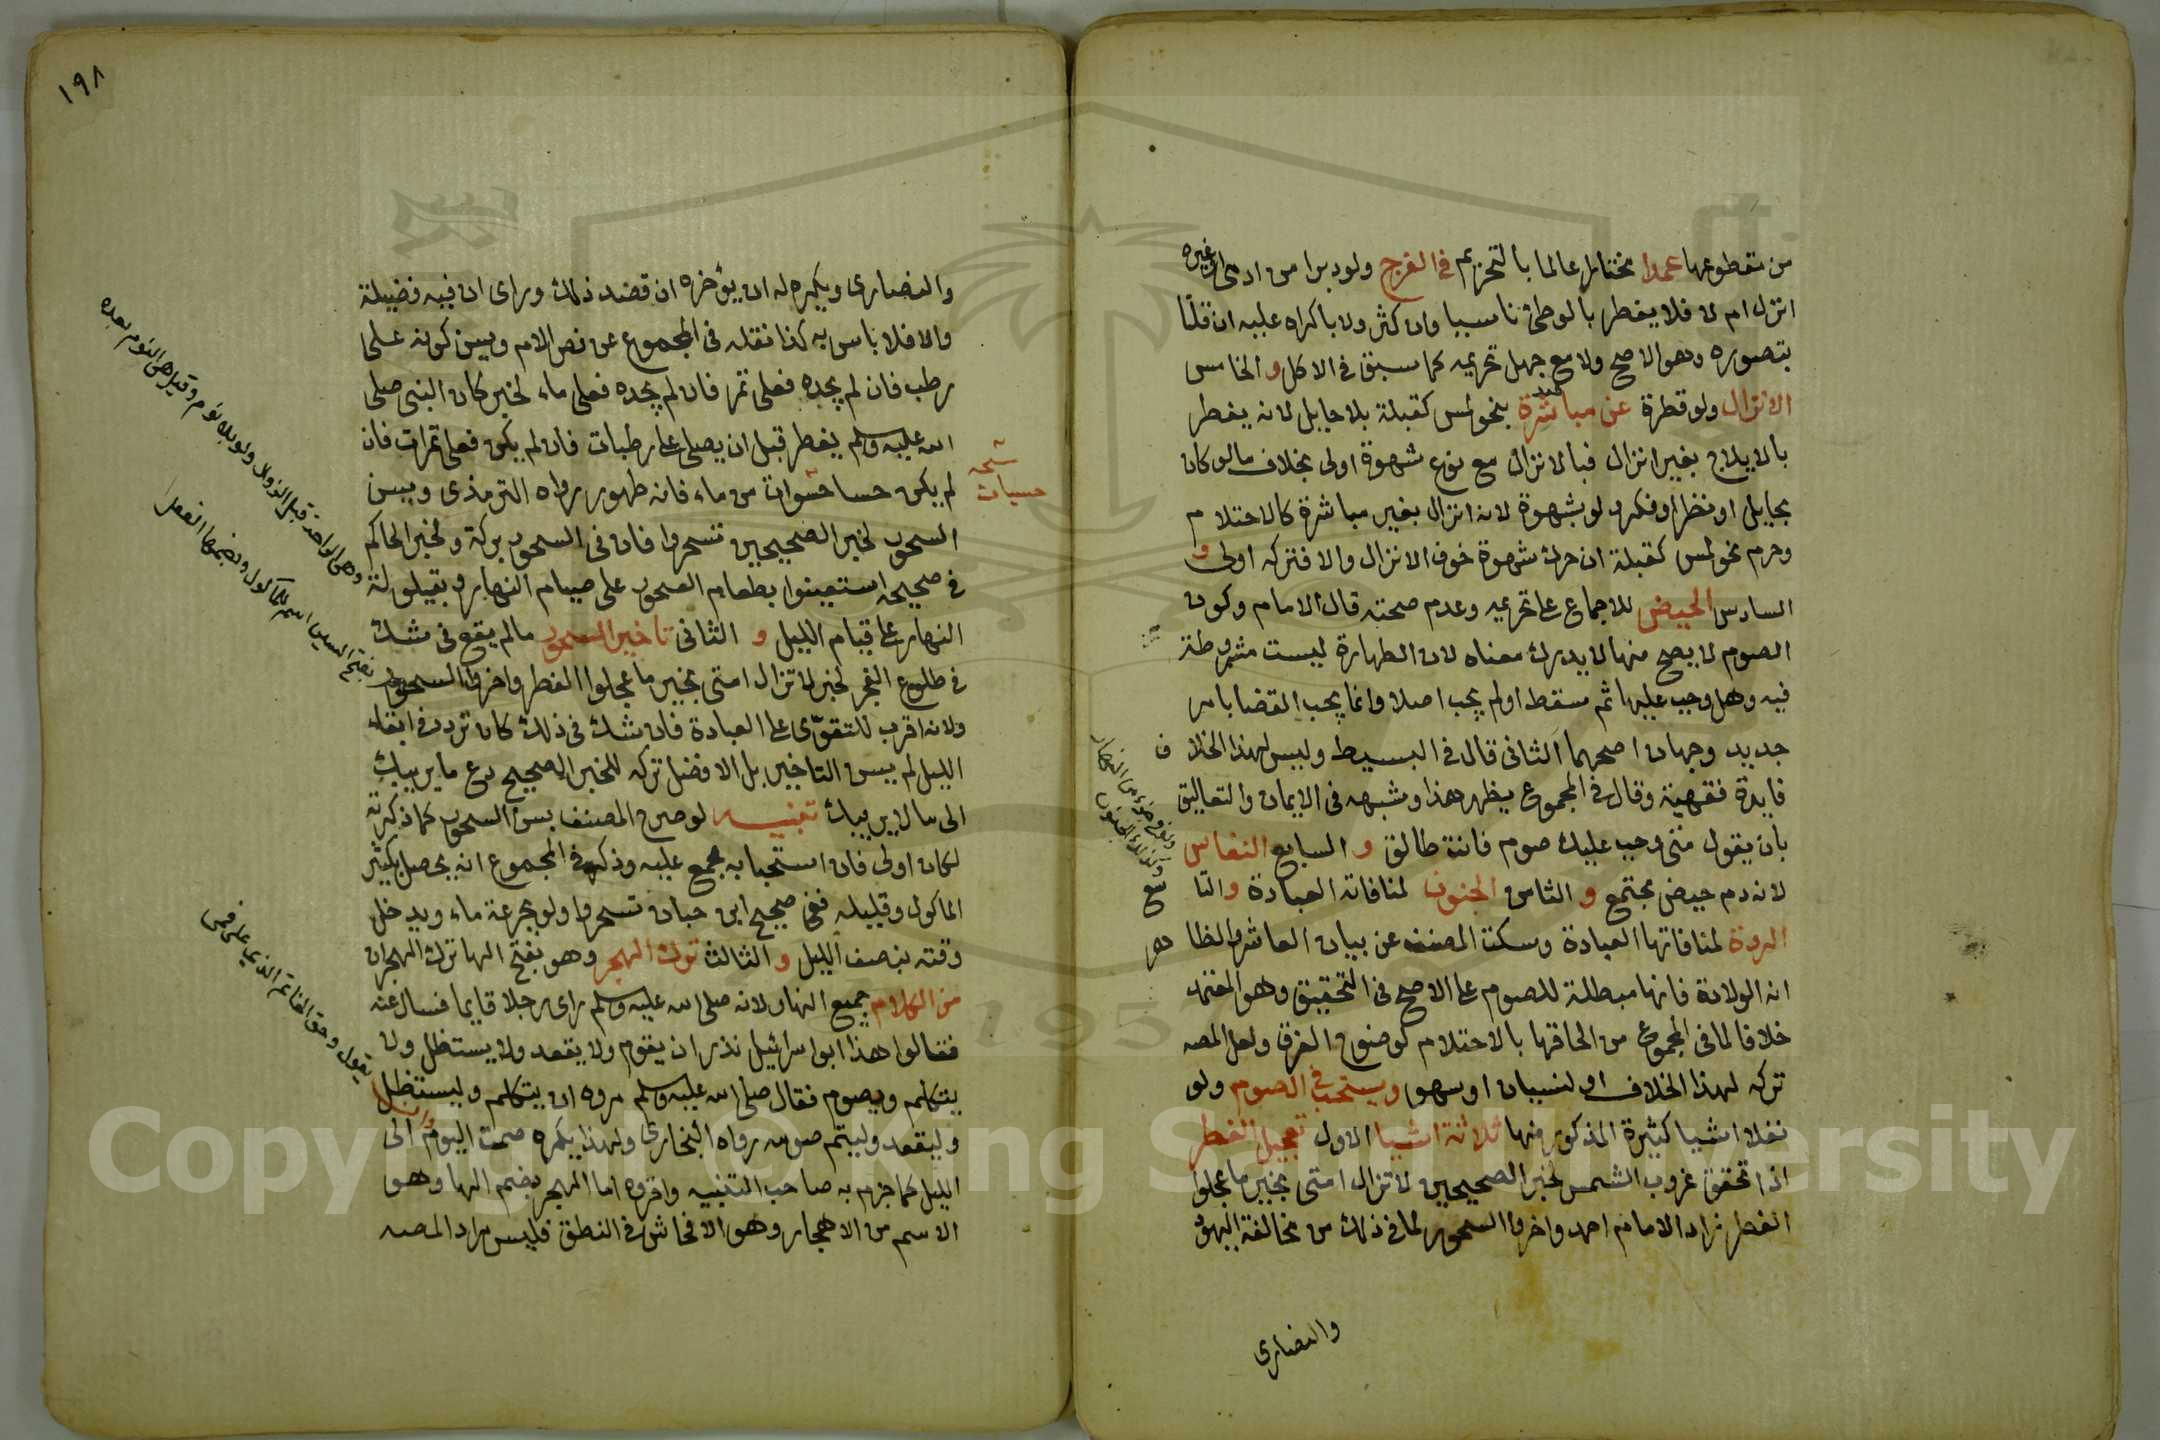 من مقطوعها عمدا مختارا عالما بالتحريم في الفرج ولو دبرا من ادمى او غيره
انزل ام لا فلا يفطر بالوطئ ناسيا وان كثر ولا باكراه عليه ان قلنا
بتصوره وهو الاصح ولا مع جهل تحريمه كما سبق في الاكل و الخامس
الانزال ولو قطرة عن مباشرة بنحو لمس كقبلة بلا حايل لانه يفطر
بالايلاج بغير انزال فبالانزال مع نوع شهوة اولى بخلاف مالو كان
بحايل او نظر او فكر ولو بشهوة لانه انزال بغير مباشرة كالاحتلام
وحرم نحو لمس كقبلة ان حرك شهوة خوف الانزال والا فتركه اولى و
السادس الحيض للاجماع على تحريمه وعدم صحته قال الامام وكون
الصوم لا يصح منها لا يدرك معناه لان الطهارة ليست مشروطة
فيه وهل وجب عليها ثم سقط او لم يجب اصلا وانما يجب القضا بامر
جديد وجهان اصحهما الثانى قال في البسيط وليس لهذا الخلاف
فايدة فقهية وقال في المجموع يظهر هذا وشبهه في الايمان والتعاليق
بان يقول متى وجب عليك صوم فانت طالق و السابع النفاس
لانه دم حيض مجتمع و الثامن الجنون لمنافاته العبادة و التاسع
الردة لمنافاتها العبادة وسكت المصنف عن بيان العاشر والظاهر
انه الولادة فانها مبطلة للصوم على الاصح في التحقيق وهو المعتمد
خلافا لما في المجموع من الحاقها بالاحتلام لوضوح الفرق ولعل المصه
تركه لهذا الخلاف او لنسيان او سهو ويستحب في الصوم ولو
نفلا اشيا كثيرة المذكور منها ثلاثة اشيا الاول تعجيل الفطر
اذا تحقق غروب الشمس لخبر الصحيحين لا تزال امتى بخير ما عجلوا
الفطر زاد الامام احمد واخروا السحور لما في ذلك من مخالفة اليهود
والنصارى
١٩٨
والنصارى ويكره له ان يؤخره ان قصد ذلك وراى ان فيه فضيلة
والا فلا باس به كذا نقله في المجموع عن نص الام ويسن كونه على
رطب فان لم يجده فعلى تمر فان لم يجده فعلى ماء لخبر كان النبى صلى
الله عليه وسلم يفطر قبل ان يصلى على رطبات فان لم يكن فعلى تمرات فان
لم يكن حسا حسوات من ماء فانه طهور رواه الترمذى ويسن
السحور لخبر الصحيحين تسحروا فان في السحور بركة ولخبر الحاكم
في صحيحه استعينوا بطعام السحور على صيام النهار وبقيلولة
النهار على قيام الليل و الثانى تاخير السحور مالم يقع في شك
في طلوع الفجر لخبر لا تزال امتى بخير ما عجلوا الفطر واخروا السحور
ولانه اقرب للتقوّى على العبادة فان شك في ذلك كان تردد في ابقاء
الليل لم يسن التاخير بل الافضل تركه للخبر الصحيح دع ما يريبك
الى ما لا يريبك تنبيه لو صرح المصنف بسن السحور كما ذكرته
لكان اولى فان استحبابه مجمع عليه وذكر في المجموع انه يحصل بكثير
الماكول وقليله ففى صحيح ابن حبان تسحروا ولو بجرعة ماء ويدخل
وقته بنصف الليل و الثالث ترك الهجر وهو بفتح الها ترك الهجران
من الكلام جميع النهار لانه صلى الله عليه وسلم راى رجلا قايما فسال عنه
فقالوا هذا ابو اسرائيل نذر ان يقوم ولا يقعد ولا يستظل ولا
يتكلم ويصوم فقال صلى الله عليه وسلم مروه ان يتكلم وليستظل
وليقعد وليتم صومه رواه البخارى ولهذا يكره صمت اليوم الى
الليل كما جزم به صاحب التنبيه واقروه اما الهجر بضم الها وهو
الاسم من الاهجار وهو الافحاش في النطق فليس مراد المصه
نسخه
حسيات
وهى الراحة قبل الزوال ولو بلا نوم وقيل هى النوم بعده
بفتح السين اسم للماكول وبضمها الفعل
يقول وحق الخاتم الذى على فمى
Copyright © King Saud University
1957